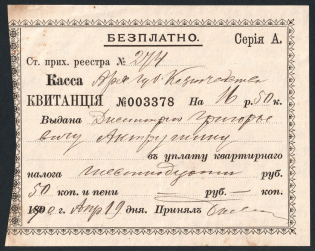 БЕЗПЛАТНО. Серія А.
Ст. прих. реестра № 274
Касса Арх. губ. Казначейства
КВИТАНЦІЯ №003378 На 16 р. 50 к.
Выдана Димитрію Григорье
вичу
въ уплату квартирнаго
налога шестнадцать руб.
50 коп. и пени руб. коп.
189 г. Апр 19 дня. Принялъ